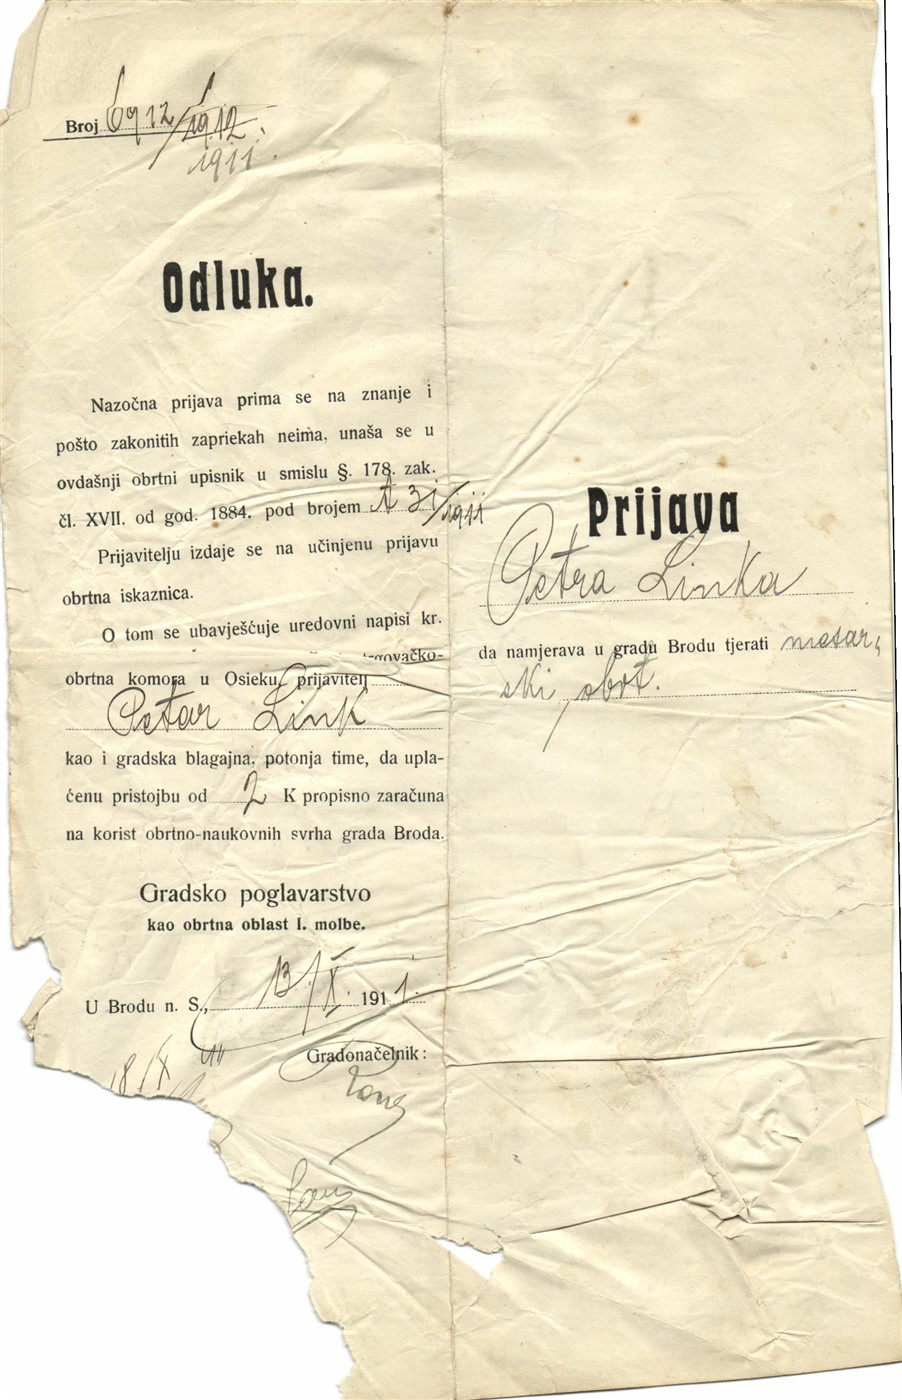 Broj 6912/1912
1911.
Odluka.
Nazočna prijava prima se na znanje i
pošto zakonitih zapriekah neima, unaša se u
ovdašnji obrtni upisnik u smislu §. 178. zak.
čl. XVII. od god. 1884. pod brojem A 31/1911
Prijavitelju izdaje se na učinjenu prijavu
obrtna iskaznica.
O tom se ubavješćuje uredovni napisi kr.
obrtna komora u Osieku, prijavitelj
Petar Link
kao i gradska blagajna, potonja time, da upla-
ćenu pristojbu od 2 K propisno zaračuna
na korist obrtno-naukovnih svrha grada Broda.
Gradsko poglavarstvo
kao obrtna oblast I. molbe.
U Brodu n. S., 13/X. 1911.
Gradonačelnik:
18/X
Prijava
Petra Linka
da namjerava u gradu Brodu tjerati mesar„
ski obrt.